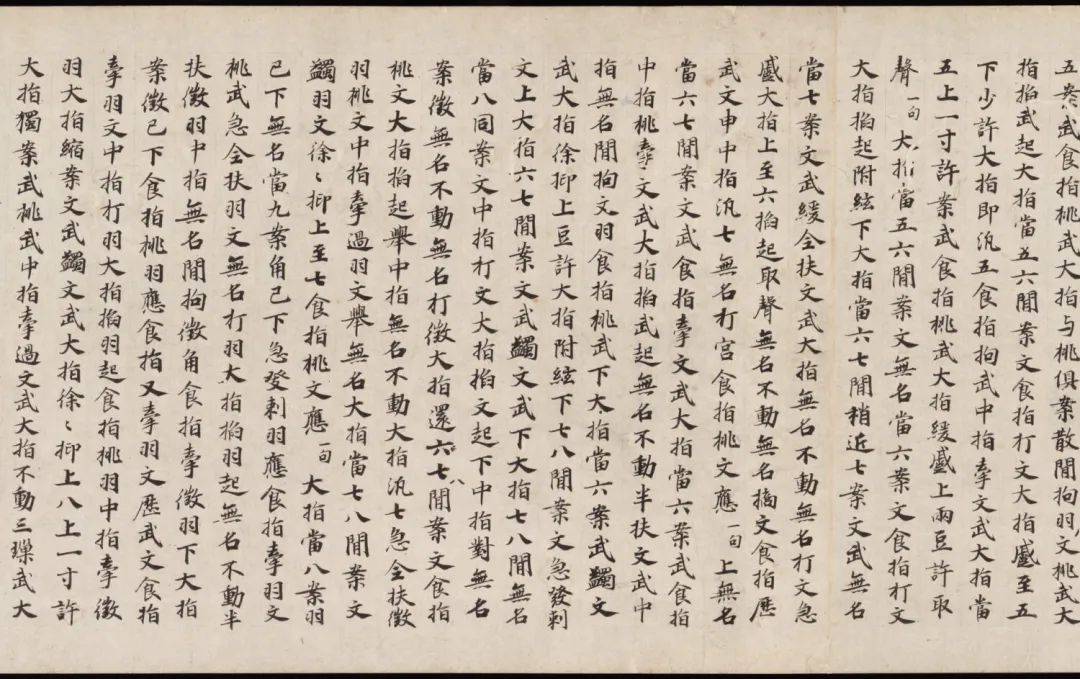 五案武食指挑武大指与挑俱案散間拘羽文挑武大
指掐武起大指當五六間案文食指打文大指蹙至五
下少許大指即汎五食指拘武中指牽文武大指當
五上一寸許案武食指挑武大指緩蹙上兩豆許取
聲一句大指當五六間案文無名當六案文食指打文
大指掐起附絃下大指當六七間稍近七案文武無名
當七案文武緩全扶文武大指無名不動無名打文急
蹙大指上至六掐起取聲無名不動無名擿文食指歷
武文中中指汎七無名打宮食指挑文應一句上無名
當六七間案文武食指牽文武大指當六案武食指
中指挑牽文武大指掐武起無名不動半扶文武中
指無名間拘文羽食指挑武下大指當六案武蠲文
武大指徐抑上豆許大指附絃下七八間案文急發剌
文上大指六七間案文武蠲文武下大指七八間無名
當八同案文中指打文大指掐文起下中指對無名
案徵無名不動無名打徵大指還六七八間案文食指
挑文大指掐起舉中指無名不動大指汎七急全扶徵
羽挑文中指牽過羽文舉無名大指當七八間案文
蠲羽文徐〻抑上至七食指挑文應一句大指當八案羽
已下無名當九案角已下急發剌羽應食指牽羽文
挑武急全扶羽文無名打羽大指掐羽起無名不動半
扶徵羽中指無名間拘徵角食指牽徵羽下大指
案徵已下食指挑羽應食指又牽羽文歷武文食指
牽羽文中指打羽大指掐羽起食指挑羽中指牽徵
羽大指縮案文武蠲文武大指徐〻抑上八上一寸許
大指獨案武挑武中指牽過文武大指不動三璅武大